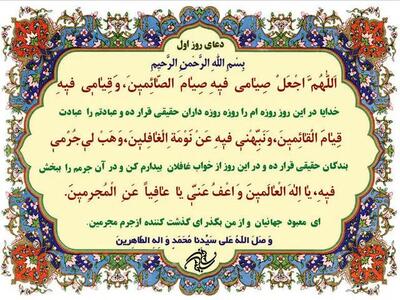 دعای روز اول
بِسْمِ اللَّهِ الرَّحْمنِ الرَّحِیمِ
اَللّهُمَّ اجْعَلْ صِیامی فیهِ صِیامَ الصّائِمینَ، وَقِیامی فیهِ
خدایا در این روز روزه ام را روزه روزه داران حقیقی قرار ده و عبادتم را عبادت
قِیامَ الْقائِمینَ، وَنَبِّهْنی فیهِ عَنْ نَوْمَةِ الْغافِلینَ، وَهَبْ لی جُرْمی
بندگان حقیقی قرار ده و در این روز از خواب غافلان بیدارم کن و در آن جرمم را ببخش
فیهِ، یا اِلهَ الْعالَمینَ وَ اعْفُ عَنّی یا عافِیاً عَنِ الْمُجرِمینَ.
ای معبود جهانیان و از من بگذر ای گذشت کننده ازجرم مجرمین.
وَ صَلَ اللهُ عَلی سَیِّدنا مُحَمَدٍ وَ الِهِ الطاهِرینَ